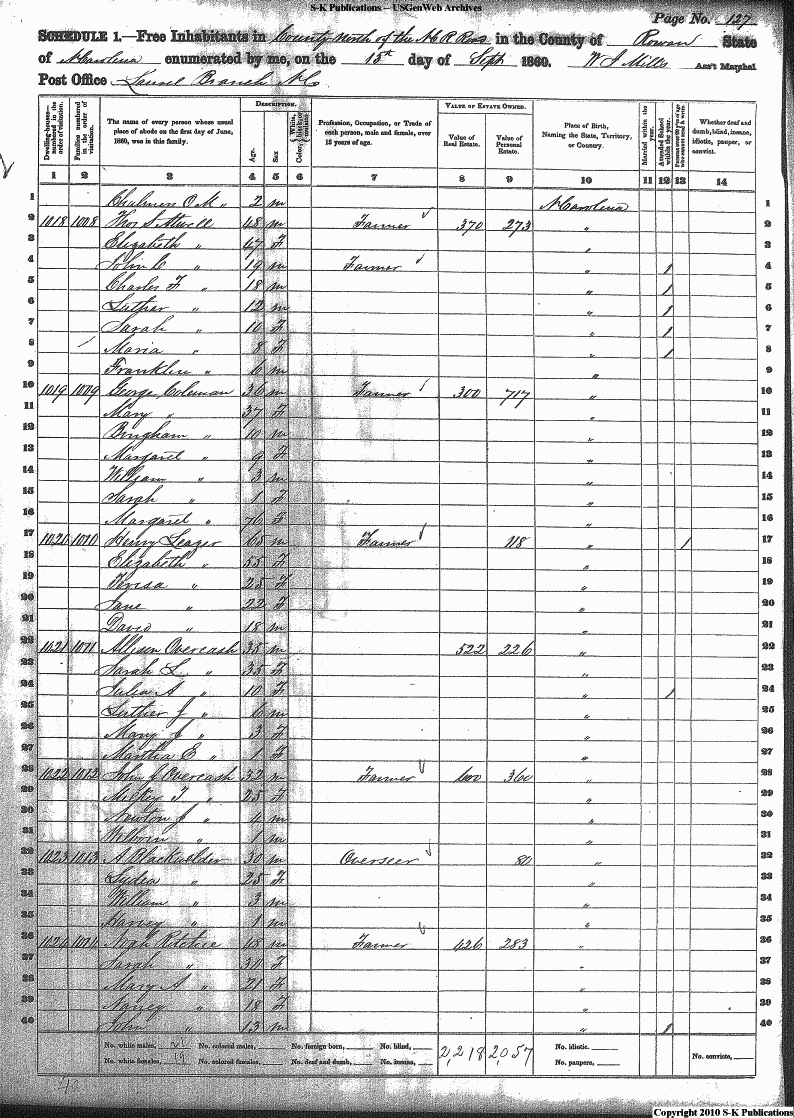 S-K Publications – USGenWeb Archives
Page No. 127
SCHEDULE 1.—Free Inhabitants in County North of the N C R Road in the County of Rowan State
of N Carolina enumerated by me, on the 15th day of Sept 1860. W J Mills Ass't Marshal
Post Office Laurel Branch N C
Dwelling-houses—numbered in the order of visitation.
Families numbered in the order of visitation.
The name of every person whose usual place of abode on the first day of June, 1860, was in this family.
DESCRIPTION.
Age.
Sex
White, Color, black, or mulatto
Profession, Occupation, or Trade of each person, male and female, over 15 years of age.
VALUE OF ESTATE OWNED.
Value of Real Estate.
Value of Personal Estate.
Place of Birth, Naming the State, Territory, or Country.
Married within the year.
Attended School within the year.
Whether deaf and dumb, blind, insane, idiotic, pauper, or convict.
1 2 3 4 5 6 7 8 9 10 11 12 13 14
1 Chalmers O M „ 2 m N Carolina 1
2 1018 1008 Thos S. Atwell 48 m Farmer 370 273 „ 2
3 Elizabeth „ 47 F „ 3
4 John C „ 19 m Farmer „ 1 4
5 Charles F „ 18 m „ 1 5
6 Luther „ 12 m „ 1 6
7 Sarah „ 10 F „ 1 7
8 Maria „ 8 F „ 1 8
9 Franklin „ 6 m „ 9
10 1019 1009 George Coleman 36 m Farmer 300 717 „ 10
11 Mary „ 37 F „ 11
12 Bingham „ 10 m „ 12
13 Margaret „ 9 F „ 13
14 William „ 3 m „ 14
15 Sarah „ 1 F „ 15
16 Margaret „ 76 F „ 16
17 1020 1010 Henry Leazer 65 m Farmer 118 „ 1 17
18 Elizabeth „ 55 F „ 18
19 Teresa „ 25 F „ 19
20 Jane „ 22 F „ 20
21 David „ 18 m „ 21
22 1021 1011 Allison Overcash 35 m 522 226 „ 22
23 Sarah L „ 35 F „ 23
24 Julia A „ 10 F „ 1 24
25 Luther J „ 6 m „ 25
26 Mary J „ 3 F „ 26
27 Martha E „ 1 F „ 27
28 1022 1012 John J Overcash 32 m Farmer 600 360 „ 28
29 T „ 25 F „ 29
30 Newton J „ 4 m „ 30
31 Wilborn „ 1 m „ 31
32 1023 1013 A Blackwelder 30 m Overseer 80 „ 32
33 Lydea „ 25 F „ 33
34 William „ 3 m „ 34
35 Harvey „ 1 m „ 35
36 1024 1014 Noah Ritchie 48 m Farmer 426 283 „ 36
37 Sarah „ 34 F „ 37
38 Mary A „ 21 F „ 38
39 Nancy „ 18 F „ 39
40 John „ 13 m „ 1 40
No. white males, 21 No. colored males, No. foreign born, No. blind, 2,218 2,057 No. idiotic.
No. white females, 19 No. colored females, No. deaf and dumb, No. insane, No. paupers, No. convicts,
40
Copyright 2010 S-K Publications